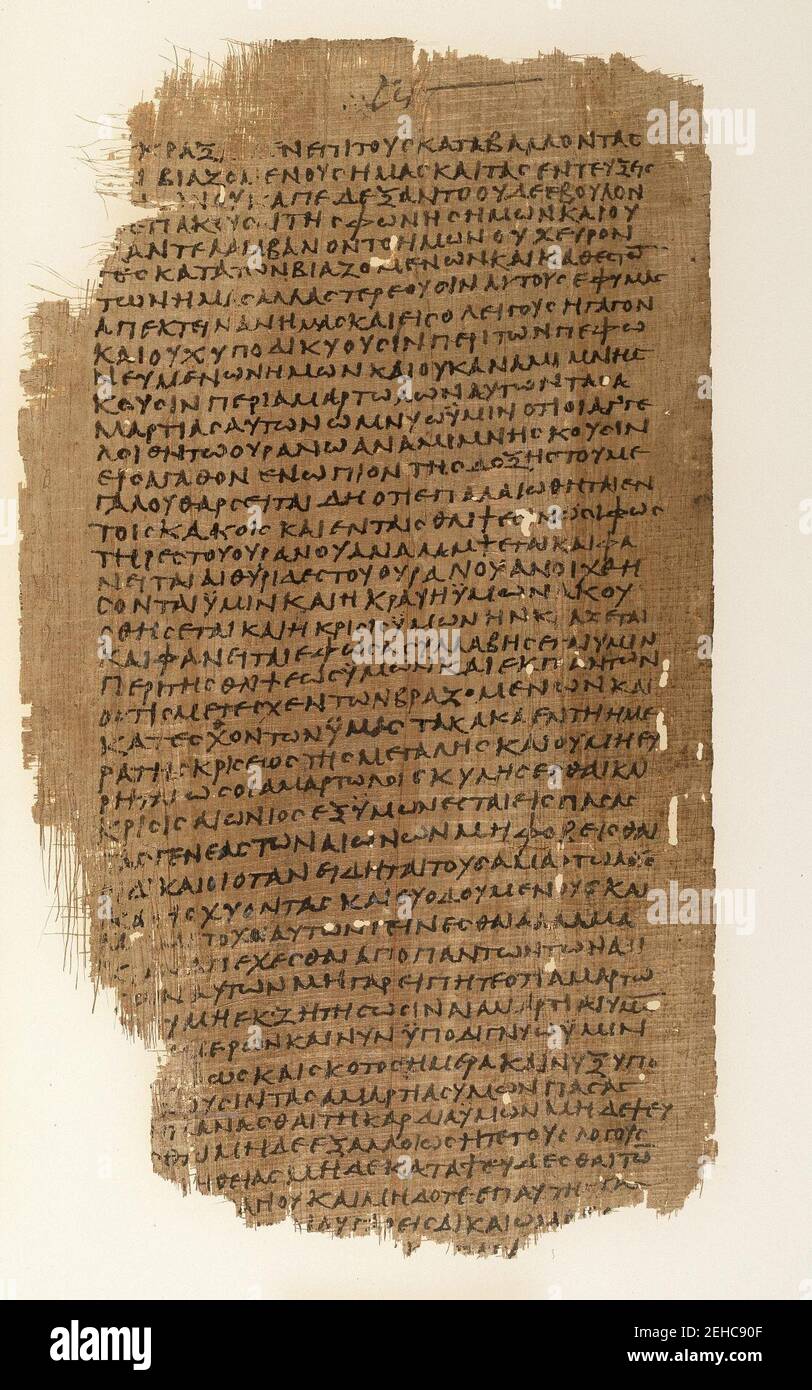 ΚΡΑΞ ΝΕΠΙΤΟΥϹΚΑΤΑΒΑΛΛΟΝΤΑϹ
ΒΙΑΖΟΜΕΝΟΥϹΗΜΑϹΚΑΙΤΑϹΕΝΤΕΥΞΕΙϹ
ΟΥΚΑΠΕΔΕΞΑΝΤΟΟΥΔΕΕΒΟΥΛΟΝ
ΠΑΚΟΥϹΑΙΤΗϹΦΩΝΗϹΗΜΩΝΚΑΙΟΥ
ΑΝΤΕΛΑΜΒΑΝΟΝΤΟΗΜΩΝΟΥΧΕΥΡΟΝ
ΤΕϹΚΑΤΑΤΩΝΒΙΑΖΟΜΕΝΩΝΚΑΙΚΑΘΕϹΤΟ
ΤΩΝΗΜΑϹΑΛΛΑϹΤΕΡΕΟΥϹΙΝΑΥΤΟΥϹΕΦΥΜΑϹ
ΑΠΕΚΤΕΙΝΑΝΗΜΑϹΚΑΙΕΙϹΟΛΕΙΓΟΥϹΗΓΑΓΟΝ
ΚΑΙΟΥΧΥΠΟΔΙΚΥΟΥϹΙΝΠΕΡΙΤΩΝΠΕΦΩ
ΝΕΥΜΕΝΩΝΗΜΩΝΚΑΙΟΥΚΑΝΑΜΙΜΝΗϹ
ΚΟΥϹΙΝΠΕΡΙΑΜΑΡΤΩΛΩΝΑΥΤΩΝΤΑϹΑ
ΜΑΡΤΙΑϹΑΥΤΩΝΩΜΝΥΩΫΜΙΝΟΤΙΟΙΑΓΓΕ
ΛΟΙΕΝΤΩΟΥΡΑΝΩΑΝΑΜΙΜΝΗϹΚΟΥϹΙΝ
ΕΙϹΑΓΑΘΟΝΕΝΩΠΙΟΝΤΗϹΔΟΞΗϹΤΟΥΜΕ
ΓΑΛΟΥΘΑΡϹΕΙΤΑΙΔΗΟΤΙΕΠΑΛΑΙΩΘΗΤΑΙΕΝ
ΤΟΙϹΚΑΚΟΙϹΚΑΙΕΝΤΑΙϹΘΛΙΨΕϹΙΝΩϹΙΦΩϹ
ΤΗΡΕϹΤΟΥΟΥΡΑΝΟΥΑΝΑΛΑΜΨΕΤΑΙΚΑΙΦΑ
ΝΕΙΤΑΙΑΙΘΥΡΙΔΕϹΤΟΥΟΥΡΑΝΟΥΑΝΟΙΧΘΗ
ϹΟΝΤΑΙΫΜΙΝΚΑΙΗΚΡΑΥΗΫΜΩΝΑΚΟΥ
ϹΘΗϹΕΤΑΙΚΑΙΗΚΡΙϹΙϹΫΜΩΝΗΝΚΡΑΖΕΤΑΙ
ΚΑΙΦΑΝΕΙΤΑΙΕΦΟϹΑϹΥΛΛΑΒΗϹΕΤΑΙΥΜΙΝ
ΠΕΡΙΤΗϹΘΛΙΨΕΩϹΫΜΩΝΚΑΙΕΚΠΑΝΤΩΝ
ΟϹΤΙϹΜΕΤΕϹΧΕΝΤΩΝΒΙΑΖΟΜΕΝΩΝΚΑΙ
ΚΑΤΕϹΧΟΝΤΩΝΫΜΑϹΤΑΚΑΚΑΕΝΤΗΗΜΕ
ΡΑΤΗϹΚΡΙϹΕΩϹΤΗϹΜΕΓΑΛΗϹΚΑΙΟΥΜΗΕΥ
ΡΗΤΑΙΩϹΟΙΑΜΑΡΤΩΛΟΙϹΚΥΛΗϹΕϹΘΑΙΚΑΙ
ΚΡΙϹΙϹΑΙΩΝΙΟϹΕΞΫΜΩΝΕϹΤΑΙΕΙϹΠΑϹΑϹ
ΤΑϹΓΕΝΕΑϹΤΩΝΑΙΩΝΩΝΜΗΦΟΒΕΙϹΘΑΙ
ΟΙΔΙΚΑΙΟΙΟΤΑΝΕΙΔΗΤΑΙΤΟΥϹΑΜΑΡΤΩΛΟΥϹ
ΚΑΤΙϹΧΥΟΝΤΑϹΚΑΙΕΥΟΔΟΥΜΕΝΟΥϹΚΑΙ
ΤΟΧΟΙΑΥΤΩΝΓΕΙΝΕϹΘΑΙΑΛΛΑΜΑ
ΑΠΕΧΕϹΘΑΙΑΠΟΠΑΝΤΩΝΤΩΝΑΔΙ
ΩΝΑΥΤΩΝΜΗΓΑΡΕΙΠΗΤΕΟΤΙΑΜΑΡΤΩ
ΥΜΗΕΚΖΗΤΗϹΩϹΙΝΑΙΑΜΑΡΤΙΑΙΥΜΩ
ΜΕΡΩΝΚΑΙΝΥΝΫΠΟΔΙΓΝΥΩΫΜΙΝ
ΩϹΚΑΙϹΚΟΤΟϹΗΜΕΡΑΚΑΙΝΥΞΥΠΟ
ΟΥϹΙΝΤΑϹΑΜΑΡΤΙΑϹΥΜΩΝΠΑϹΑϹ
ΠΛΑΝΑϹΘΑΙΤΗΚΑΡΔΙΑΥΜΩΝΜΗΔΕΨΕΥ
ΜΗΔΕΕΞΑΛΛΟΙΩϹΗΤΕΤΟΥϹΛΟΓΟΥϹ
ΗΘΕΙΑϹΜΗΔΕΚΑΤΑΨΕΥΔΕϹΘΑΙΤΩ
ΓΙΟΥΚΑΙΜΗΔΟΤΕΕΠΑΥΤΗ
ΓΑΡΕΙϹΔΙΚΑΙΩΜΑ
alamy
Image ID: 2EHC90F
www.alamy.com